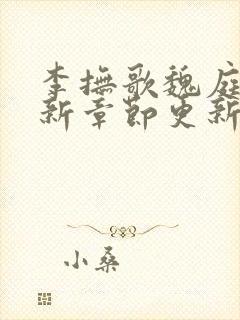 李撫歌魏庭
新章節更新
小桑